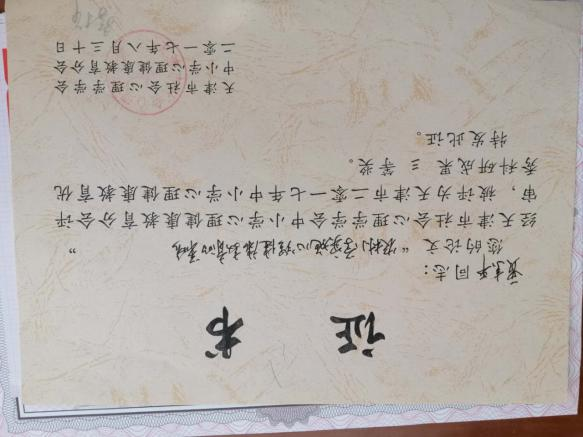 证 书
同志：
您的论文“农村小学实施心理健康教育的 ”
经天津市社会心理学会中小学心理健康教育分会评
审，被评为天津市二零一七年中小学心理健康教育优
秀科研成果 三 等奖。
特发此证。
天津市社会心理学学会
中小学心理健康教育分会
二零一七年八月三十日